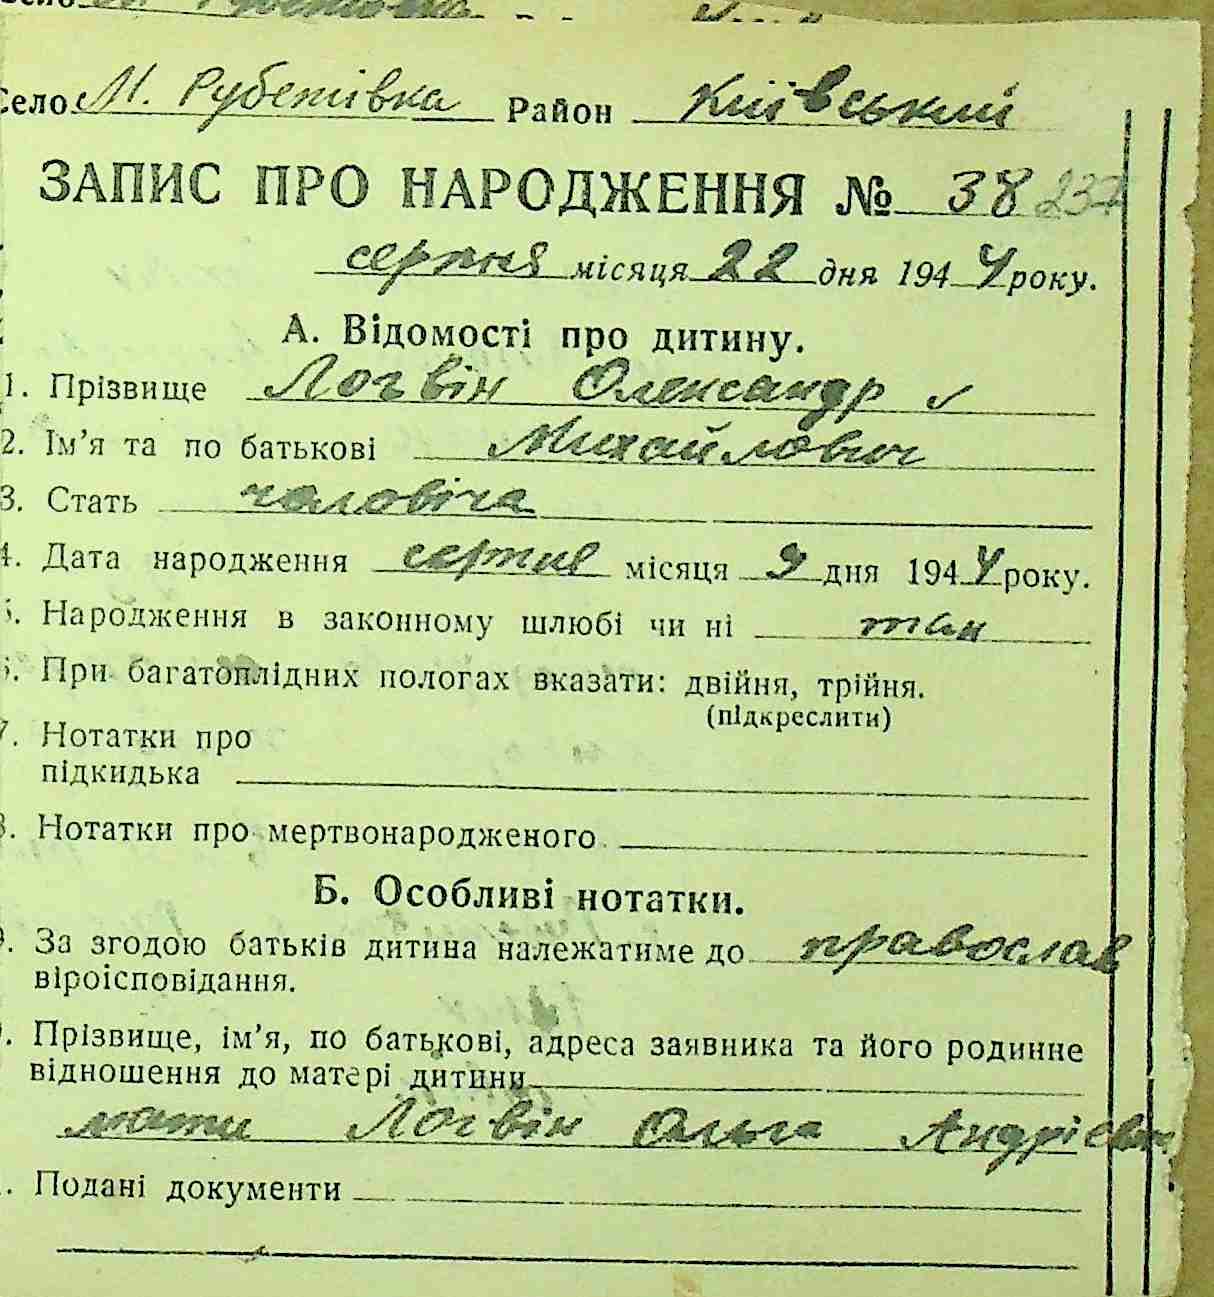 Село М. Рубежівка Район Київський
ЗАПИС ПРО НАРОДЖЕННЯ № 38
серпня місяця 22 дня 1944 року.
А. Відомості про дитину.
1. Прізвище Логвін Олександр
2. Ім'я та по батькові Михайлович
3. Стать чоловіча
4. Дата народження серпня місяця 9 дня 1944 року.
5. Народження в законному шлюбі чи ні так
6. При багатоплідних пологах вказати: двійня, трійня.
(підкреслити)
7. Нотатки про
підкидька
8. Нотатки про мертвонародженого
Б. Особливі нотатки.
9. За згодою батьків дитина належатиме до православ
віроісповідання.
. Прізвище, ім'я, по батькові, адреса заявника та його родинне
відношення до матері дитини
мати Логвін Ольга Андрієвна
. Подані документи